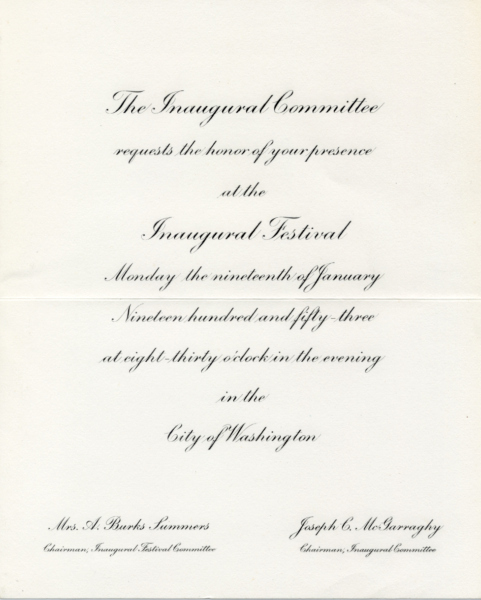 The Inaugural Committee
requests the honor of your presence
at the
Inaugural Festival
Monday the nineteenth of January
Nineteen hundred and fifty-three
at eight-thirty o'clock in the evening
in the
City of Washington
Mrs. A. Burks Summers
Chairman, Inaugural Festival Committee
Joseph C. McGarraghy
Chairman, Inaugural Committee